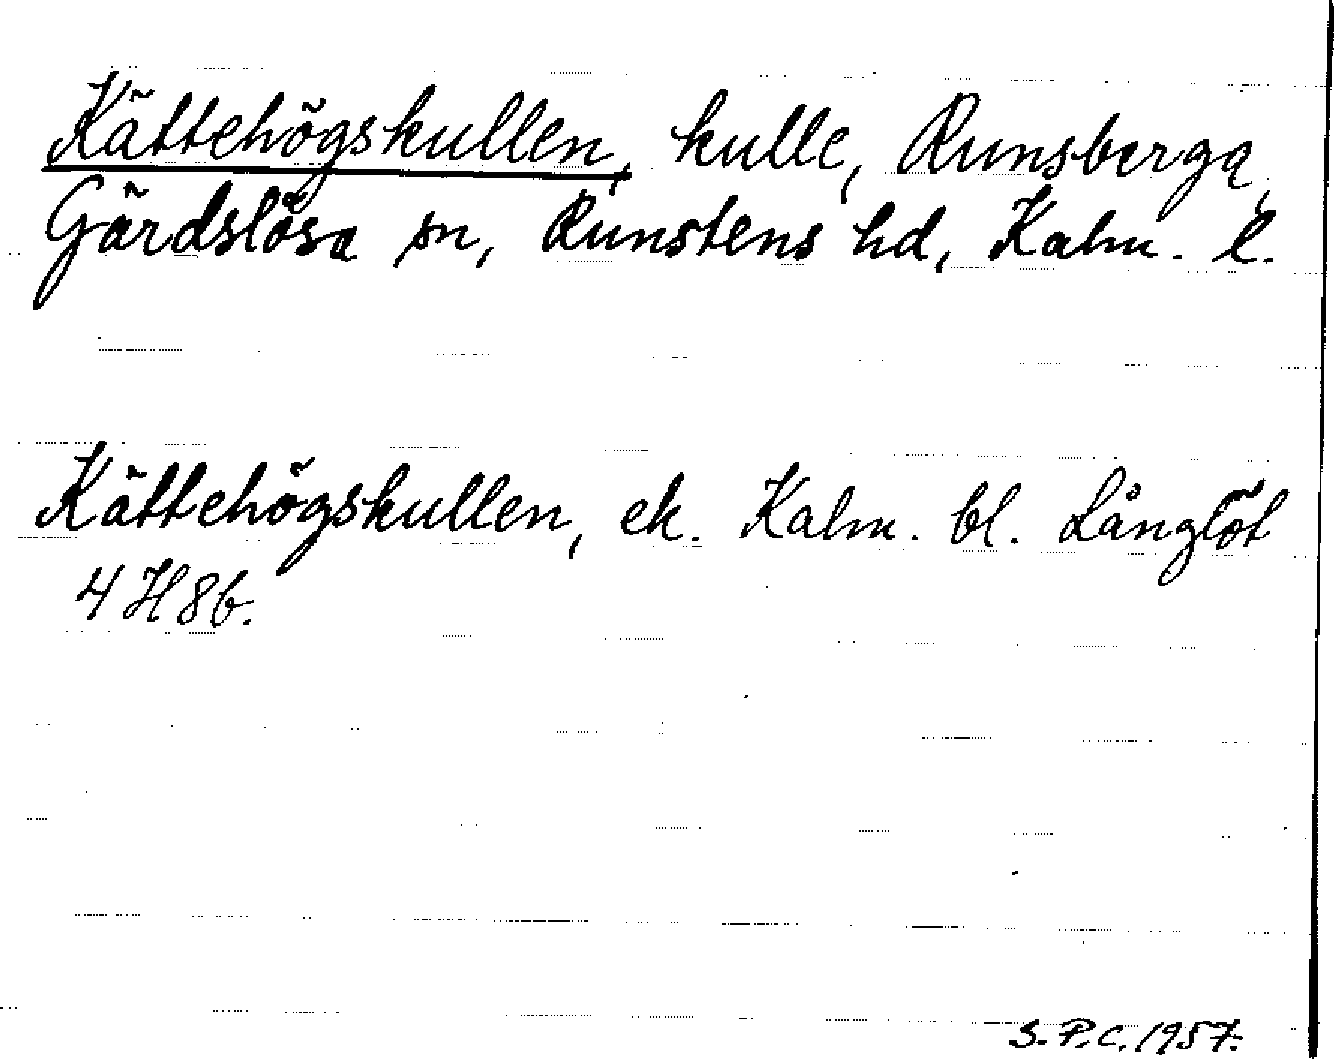 Kättehögskullen, kulle, Runsberga,
Gärdslösa sn, Runstens hd, Kalm. l.
Kättehögskullen, ek. Kalm. bl. Långlöt
4 H 8 b.
S. P. C. 1957.